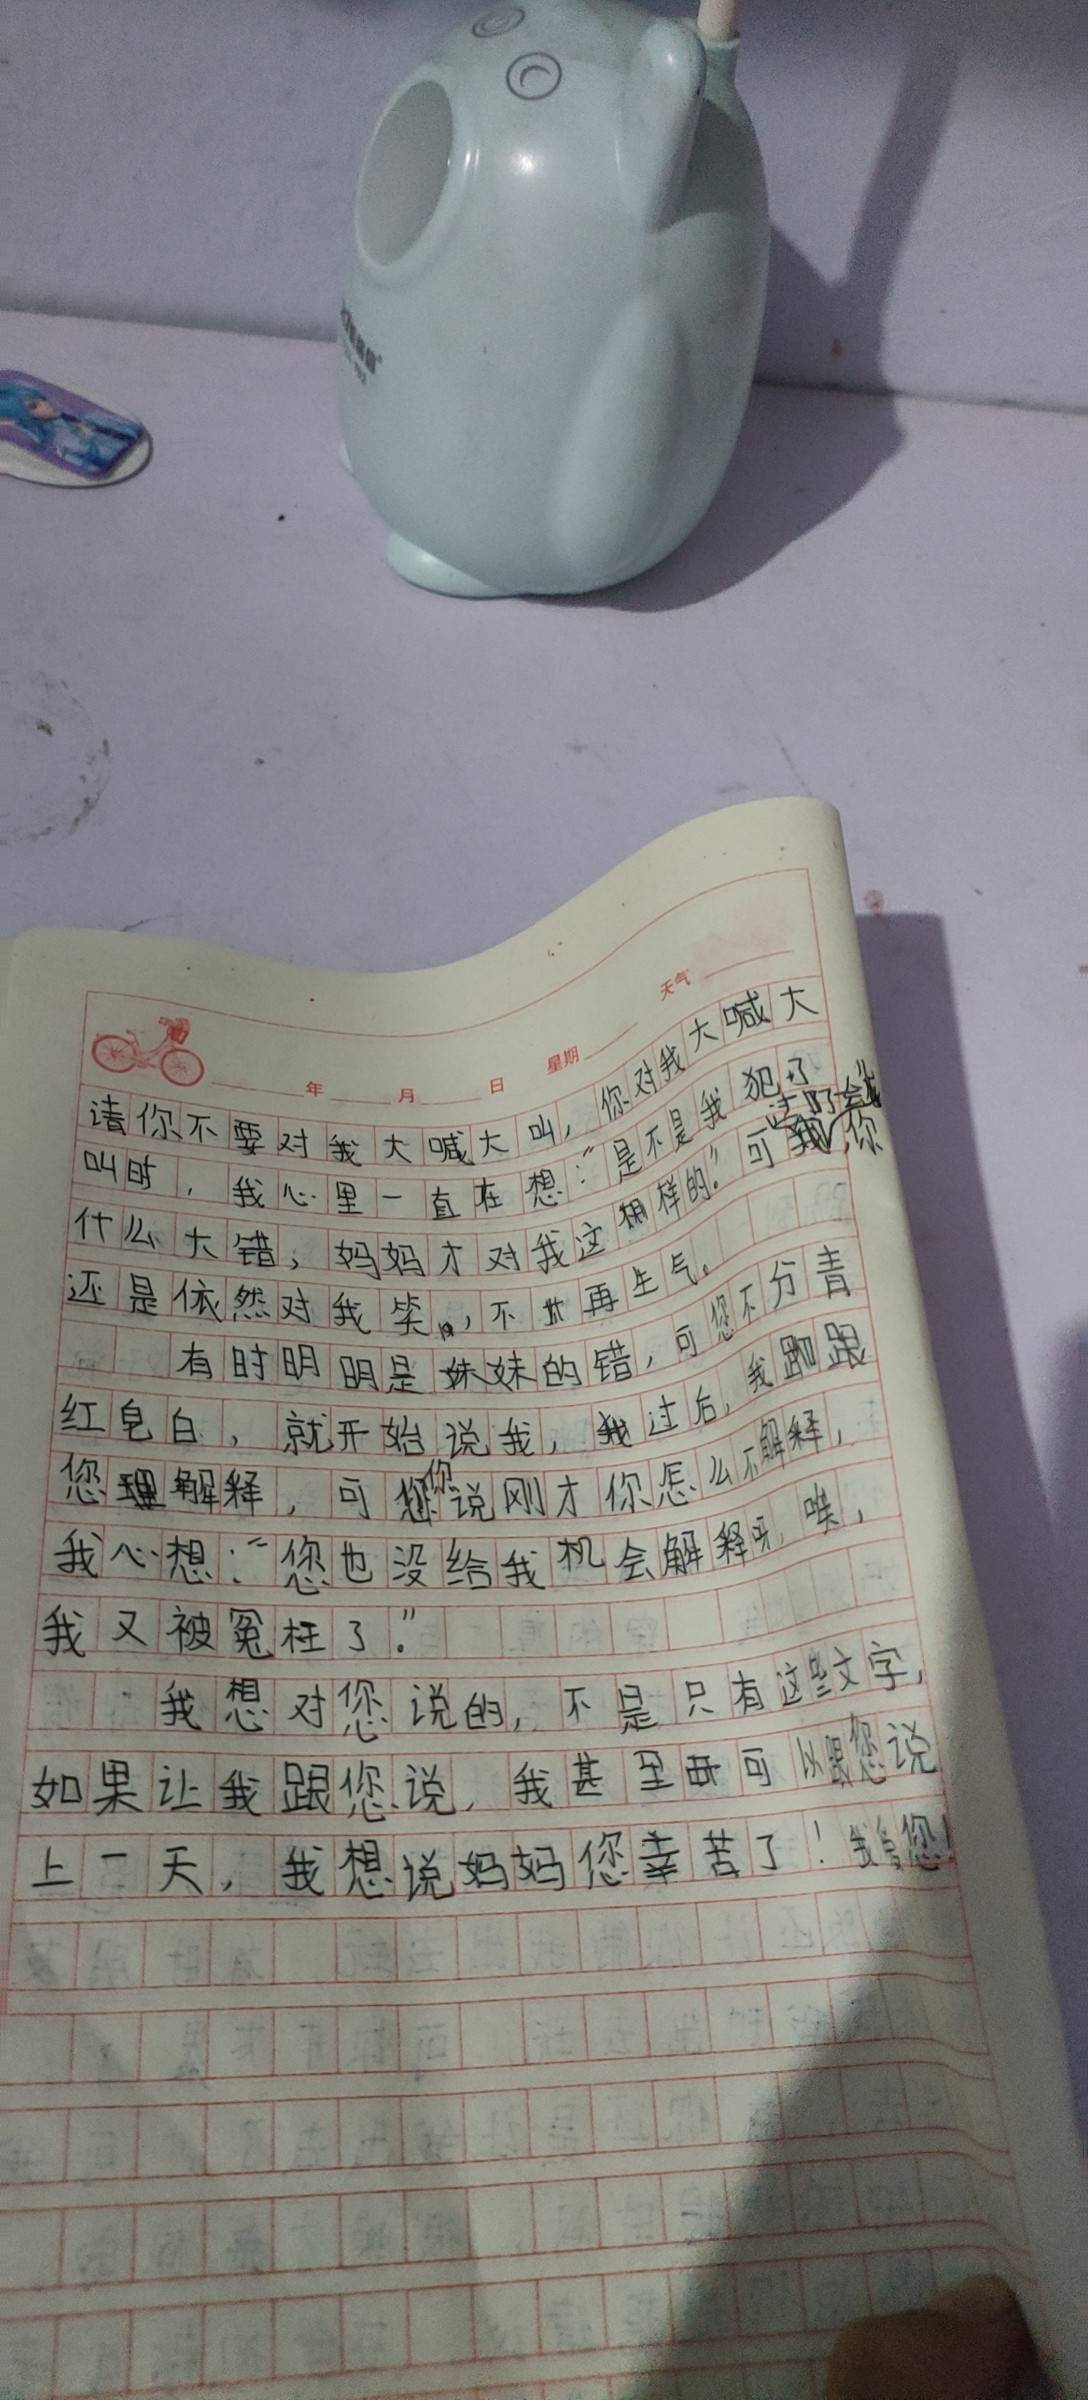 天气
年 月 日 星期
请你不要对我大喊大叫，你对我大喊大
叫时，我心里一直在想：“是不是我犯了
什么大错，妈妈才对我这样的。”可你
还是依然对我笑，不再生气。
有时明明是妹妹的错，可您不分青
红皂白，就开始说我，我过后，我跟
您解释，可您说刚才你怎么不解释，
我心想：“您也没给我机会解释呀，唉，
我又被冤枉了。”
我想对您说的，不是只有这些文字，
如果让我跟您说，我甚至可以跟您说
上一天，我想说妈妈您幸苦了！我爱您！